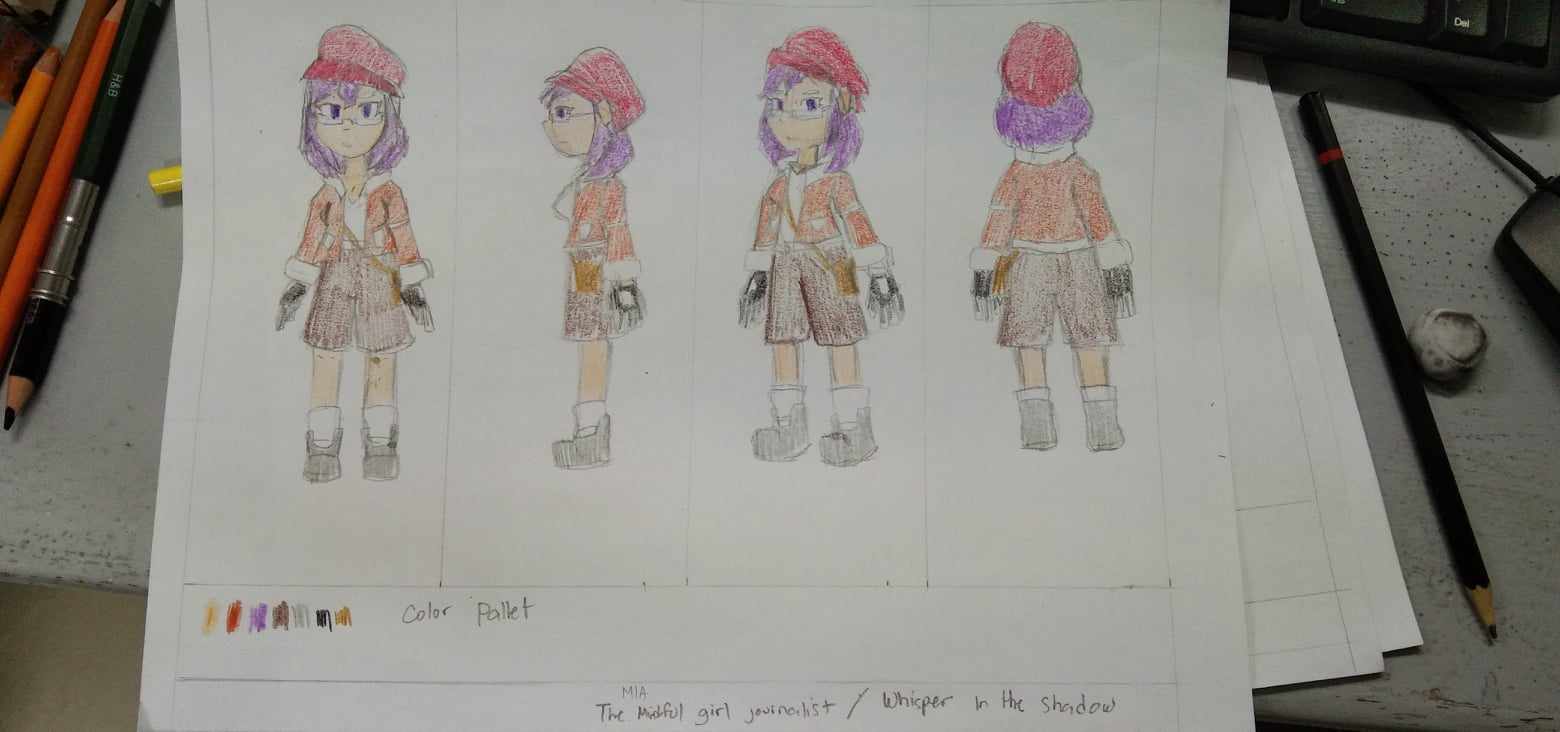 H&B
Del
Color Pallet
MIA
The Mindful girl journalist / Whisper In the shadow